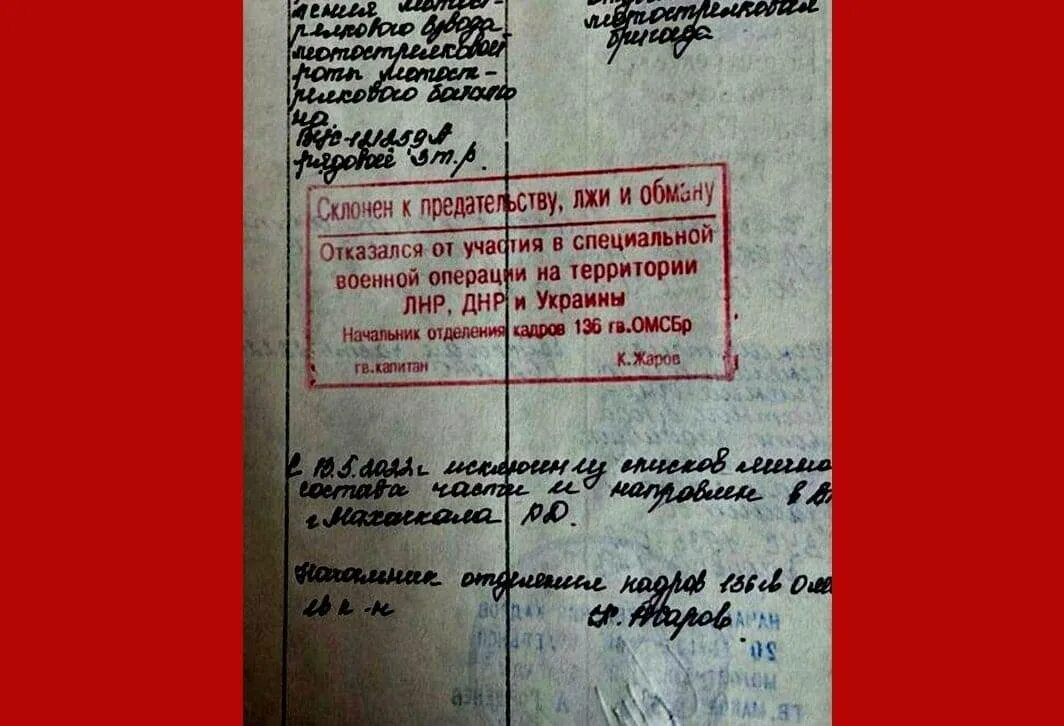 ления мотост-
релкового взвода
мотострелковой
роты мотост-
релкового батальо
на.
ВУС-121259А
рядовой 3 т.р.
мотострелковая
бригада
Склонен к предательству, лжи и обману
Отказался от участия в специальной
военной операции на территории
ЛНР, ДНР и Украины
Начальник отделения кадров 136 гв.ОМСБр
гв.капитан К.Жаров
С 19.5.2022г исключен из списков лично
состава части и направлен в В
г Махачкала РД.
Начальник отделения кадров 136 гв ОМ
гв к-н К. Жаров